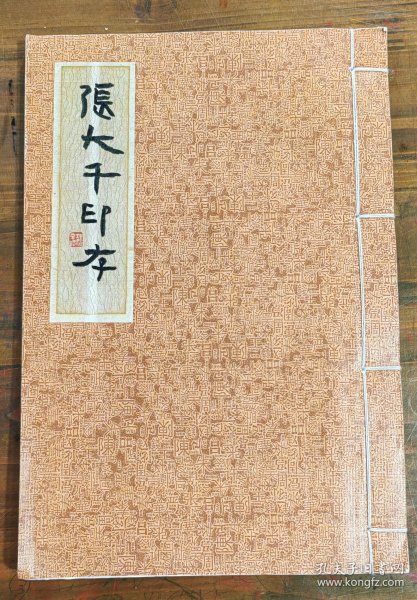 張大千印存
孔夫子旧书网
www.kongfz.com